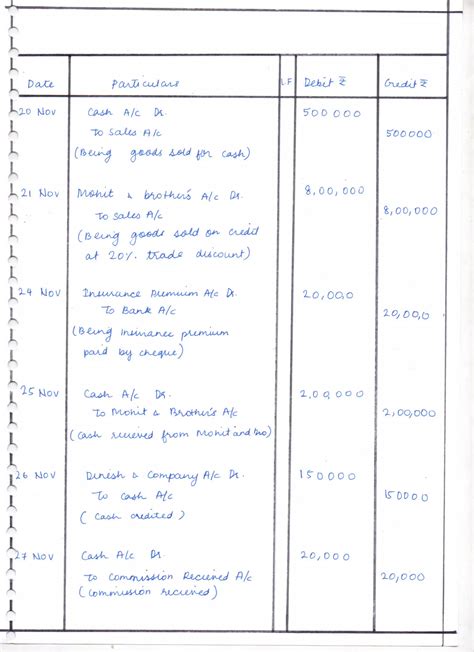 Date Particulars L.F Debit ₹ Credit ₹
20 Nov Cash A/c Dr. 500 000
To Sales A/c 500000
(Being goods sold for cash)
21 Nov Mohit & brother's A/c Dr. 8,00,000
To Sales A/c 8,00,000
(Being goods sold on credit
at 20% trade discount)
24 Nov Insurance Premium A/c Dr. 20,00,0
To Bank A/c 20,00,0
(Being insurance premium
paid by cheque)
25 Nov Cash A/c Dr. 2,00,000
To Mohit & Brother's A/c 2,00,000
(Cash recieved from Mohit and bro)
26 Nov Dinesh & Company A/c Dr. 150000
To Cash A/c 150000
(Cash credited)
27 Nov Cash A/c Dr. 20,000
To Commission Recieved A/c 20,000
(Commission recieved)